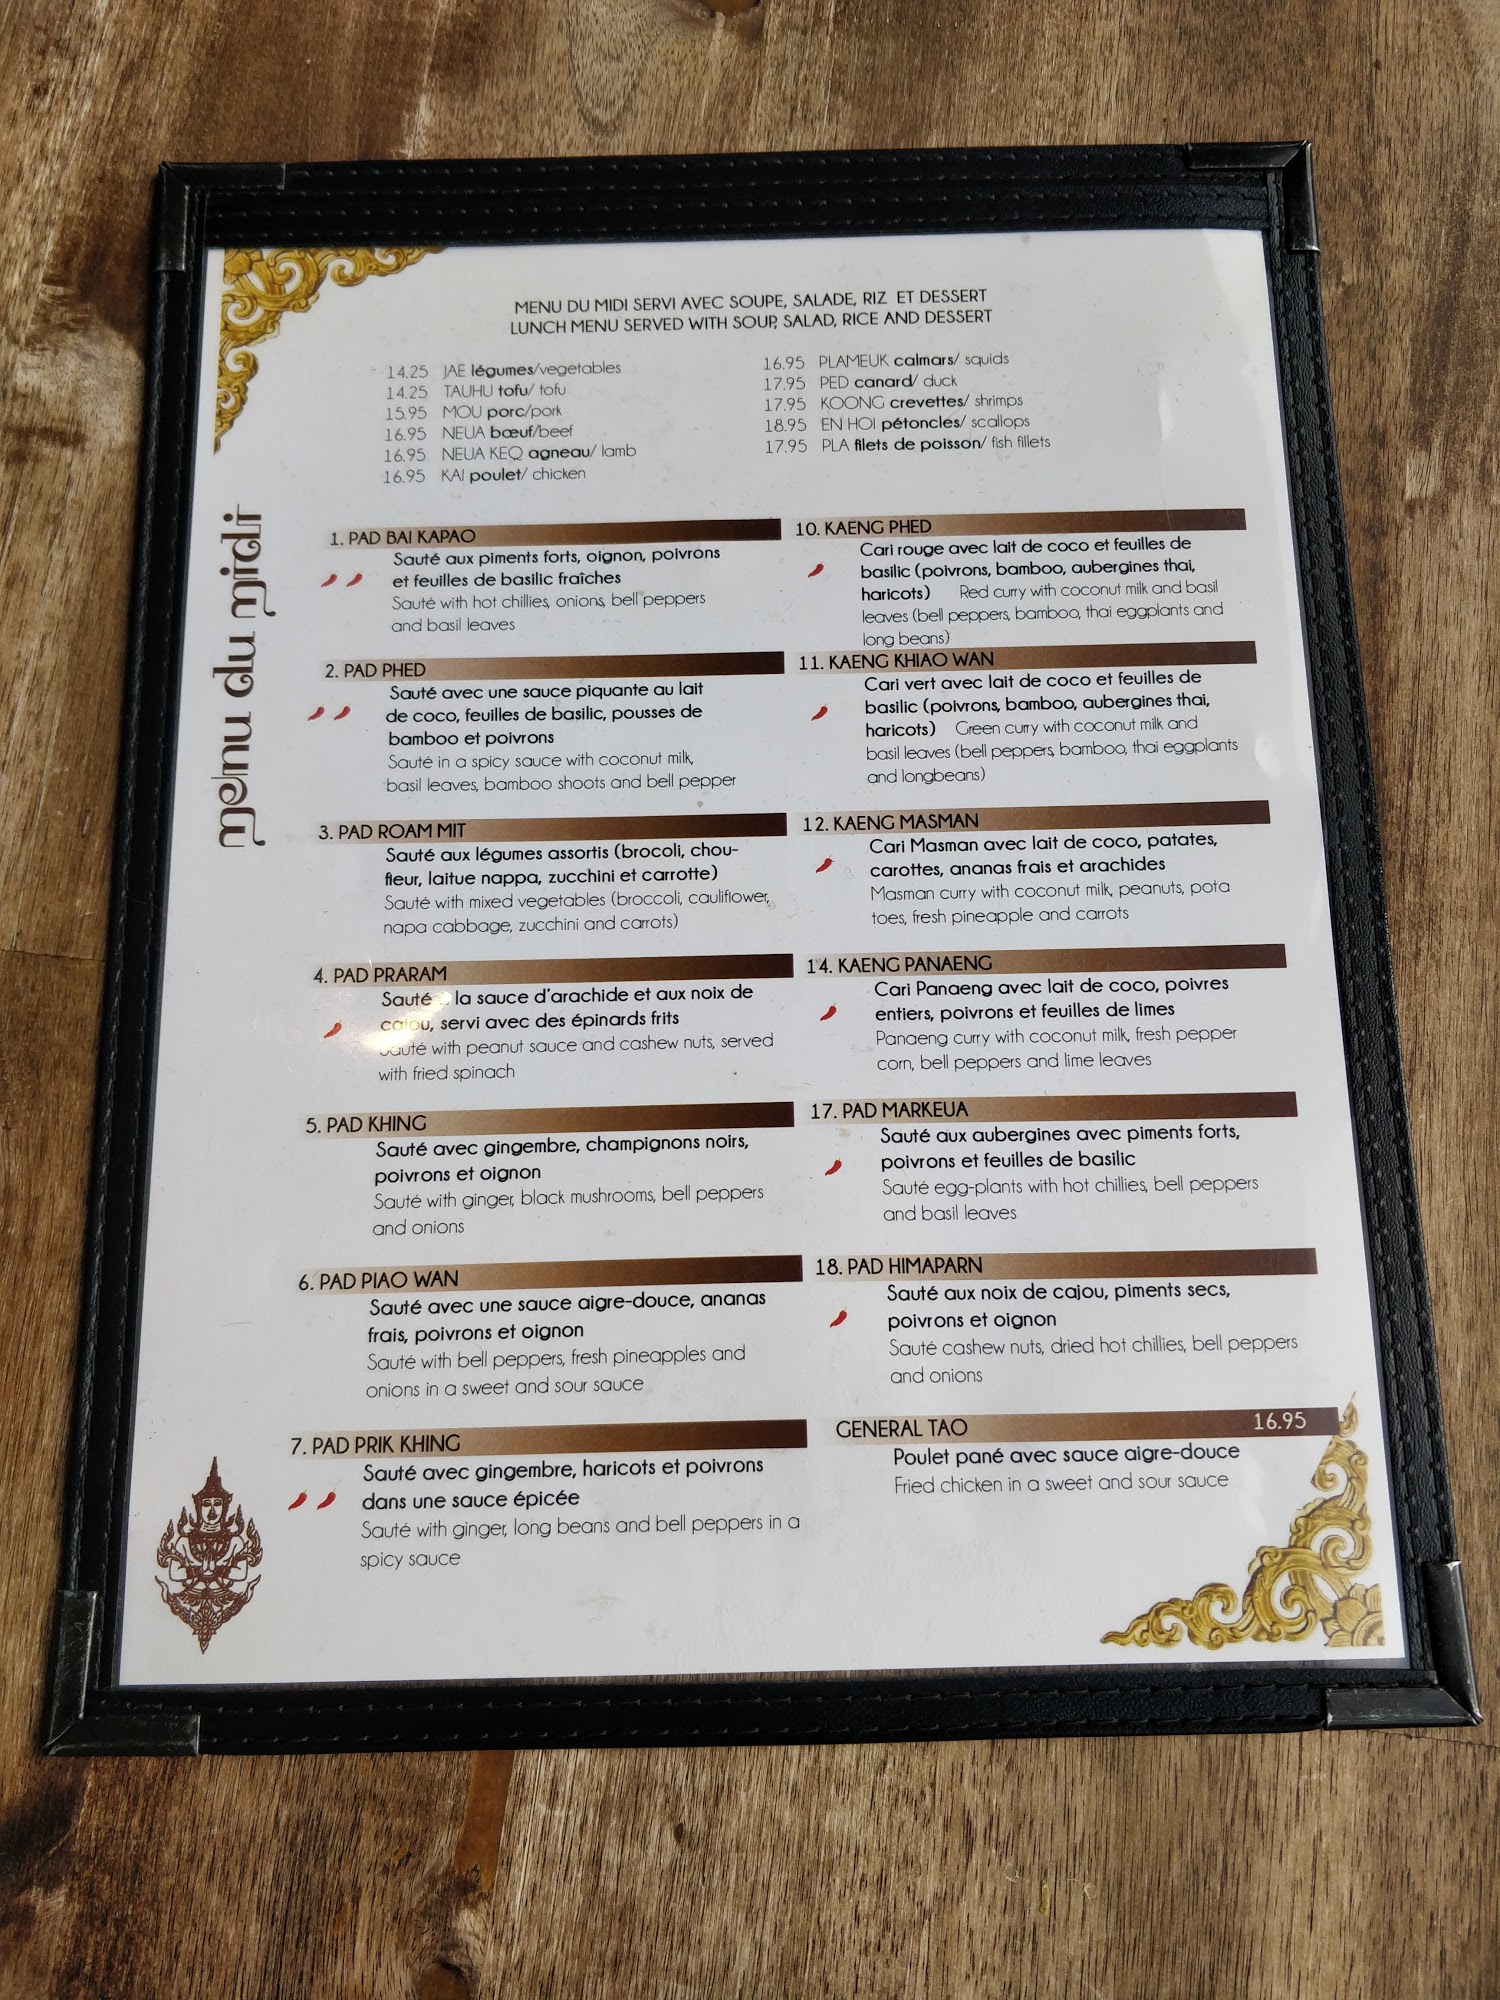 MENU DU MIDI SERVI AVEC SOUPE, SALADE, RIZ ET DESSERT
LUNCH MENU SERVED WITH SOUP, SALAD, RICE AND DESSERT
14.25 JAE légumes/vegetables
14.25 TAUHU tofu/ tofu
15.95 MOU porc/pork
16.95 NEUA bœuf/beef
16.95 NEUA KEQ agneau/ lamb
16.95 KAI poulet/ chicken
16.95 PLAMEUK calmars/ squids
17.95 PED canard/ duck
17.95 KOONG crevettes/ shrimps
18.95 EN HOI pétoncles/ scallops
17.95 PLA filets de poisson/ fish fillets
menu du midi
1. PAD BAI KAPAO
Sauté aux piments forts, oignon, poivrons
et feuilles de basilic fraîches
Sauté with hot chillies, onions, bell peppers
and basil leaves
2. PAD PHED
Sauté avec une sauce piquante au lait
de coco, feuilles de basilic, pousses de
bamboo et poivrons
Sauté in a spicy sauce with coconut milk,
basil leaves, bamboo shoots and bell pepper
3. PAD ROAM MIT
Sauté aux légumes assortis (brocoli, chou-
fleur, laitue nappa, zucchini et carrotte)
Sauté with mixed vegetables (broccoli, cauliflower,
napa cabbage, zucchini and carrots)
4. PAD PRARAM
Sauté la sauce d'arachide et aux noix de
cajou, servi avec des épinards frits
Sauté with peanut sauce and cashew nuts, served
with fried spinach
5. PAD KHING
Sauté avec gingembre, champignons noirs,
poivrons et oignon
Sauté with ginger, black mushrooms, bell peppers
and onions
6. PAD PIAO WAN
Sauté avec une sauce aigre-douce, ananas
frais, poivrons et oignon
Sauté with bell peppers, fresh pineapples and
onions in a sweet and sour sauce
7. PAD PRIK KHING
Sauté avec gingembre, haricots et poivrons
dans une sauce épicée
Sauté with ginger, long beans and bell peppers in a
spicy sauce
10. KAENG PHED
Cari rouge avec lait de coco et feuilles de
basilic (poivrons, bamboo, aubergines thai,
haricots) Red curry with coconut milk and basil
leaves (bell peppers, bamboo, thai eggplants and
long beans)
11. KAENG KHIAO WAN
Cari vert avec lait de coco et feuilles de
basilic (poivrons, bamboo, aubergines thai,
haricots) Green curry with coconut milk and
basil leaves (bell peppers, bamboo, thai eggplants
and longbeans)
12. KAENG MASMAN
Cari Masman avec lait de coco, patates,
carottes, ananas frais et arachides
Masman curry with coconut milk, peanuts, pota
toes, fresh pineapple and carrots
14. KAENG PANAENG
Cari Panaeng avec lait de coco, poivres
entiers, poivrons et feuilles de limes
Panaeng curry with coconut milk, fresh pepper
corn, bell peppers and lime leaves
17. PAD MARKEUA
Sauté aux aubergines avec piments forts,
poivrons et feuilles de basilic
Sauté egg-plants with hot chillies, bell peppers
and basil leaves
18. PAD HIMAPARN
Sauté aux noix de cajou, piments secs,
poivrons et oignon
Sauté cashew nuts, dried hot chillies, bell peppers
and onions
GENERAL TAO 16.95
Poulet pané avec sauce aigre-douce
Fried chicken in a sweet and sour sauce